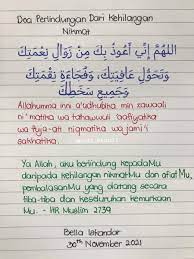 Doa Perlindungan Dari Kehilangan
Nikmat
اللهُمَّ إِنِّي أَعُوذُ بِكَ مِنْ زَوَالِ نِعْمَتِكَ
وَتَحَوُّلِ عَافِيَتِكَ، وَفُجَاءَةِ نِقْمَتِكَ
وَجَمِيعِ سَخَطِكَ
Allahumma inni a'udhubika min zawaali
ni'matika wa tahawwuli 'aafiyatika
wa fuja-ati niqmatika wa jami'i
sakhatika
Ya Allah, aku berlindung kepadaMu
daripada kehilangan nikmatMu dan afiatMu,
pembalasanMu yang datang secara
tiba-tiba dan keseluruhan kemurkaan
Mu. - HR Muslim 2739
Bella Iskandar
30th November 2021